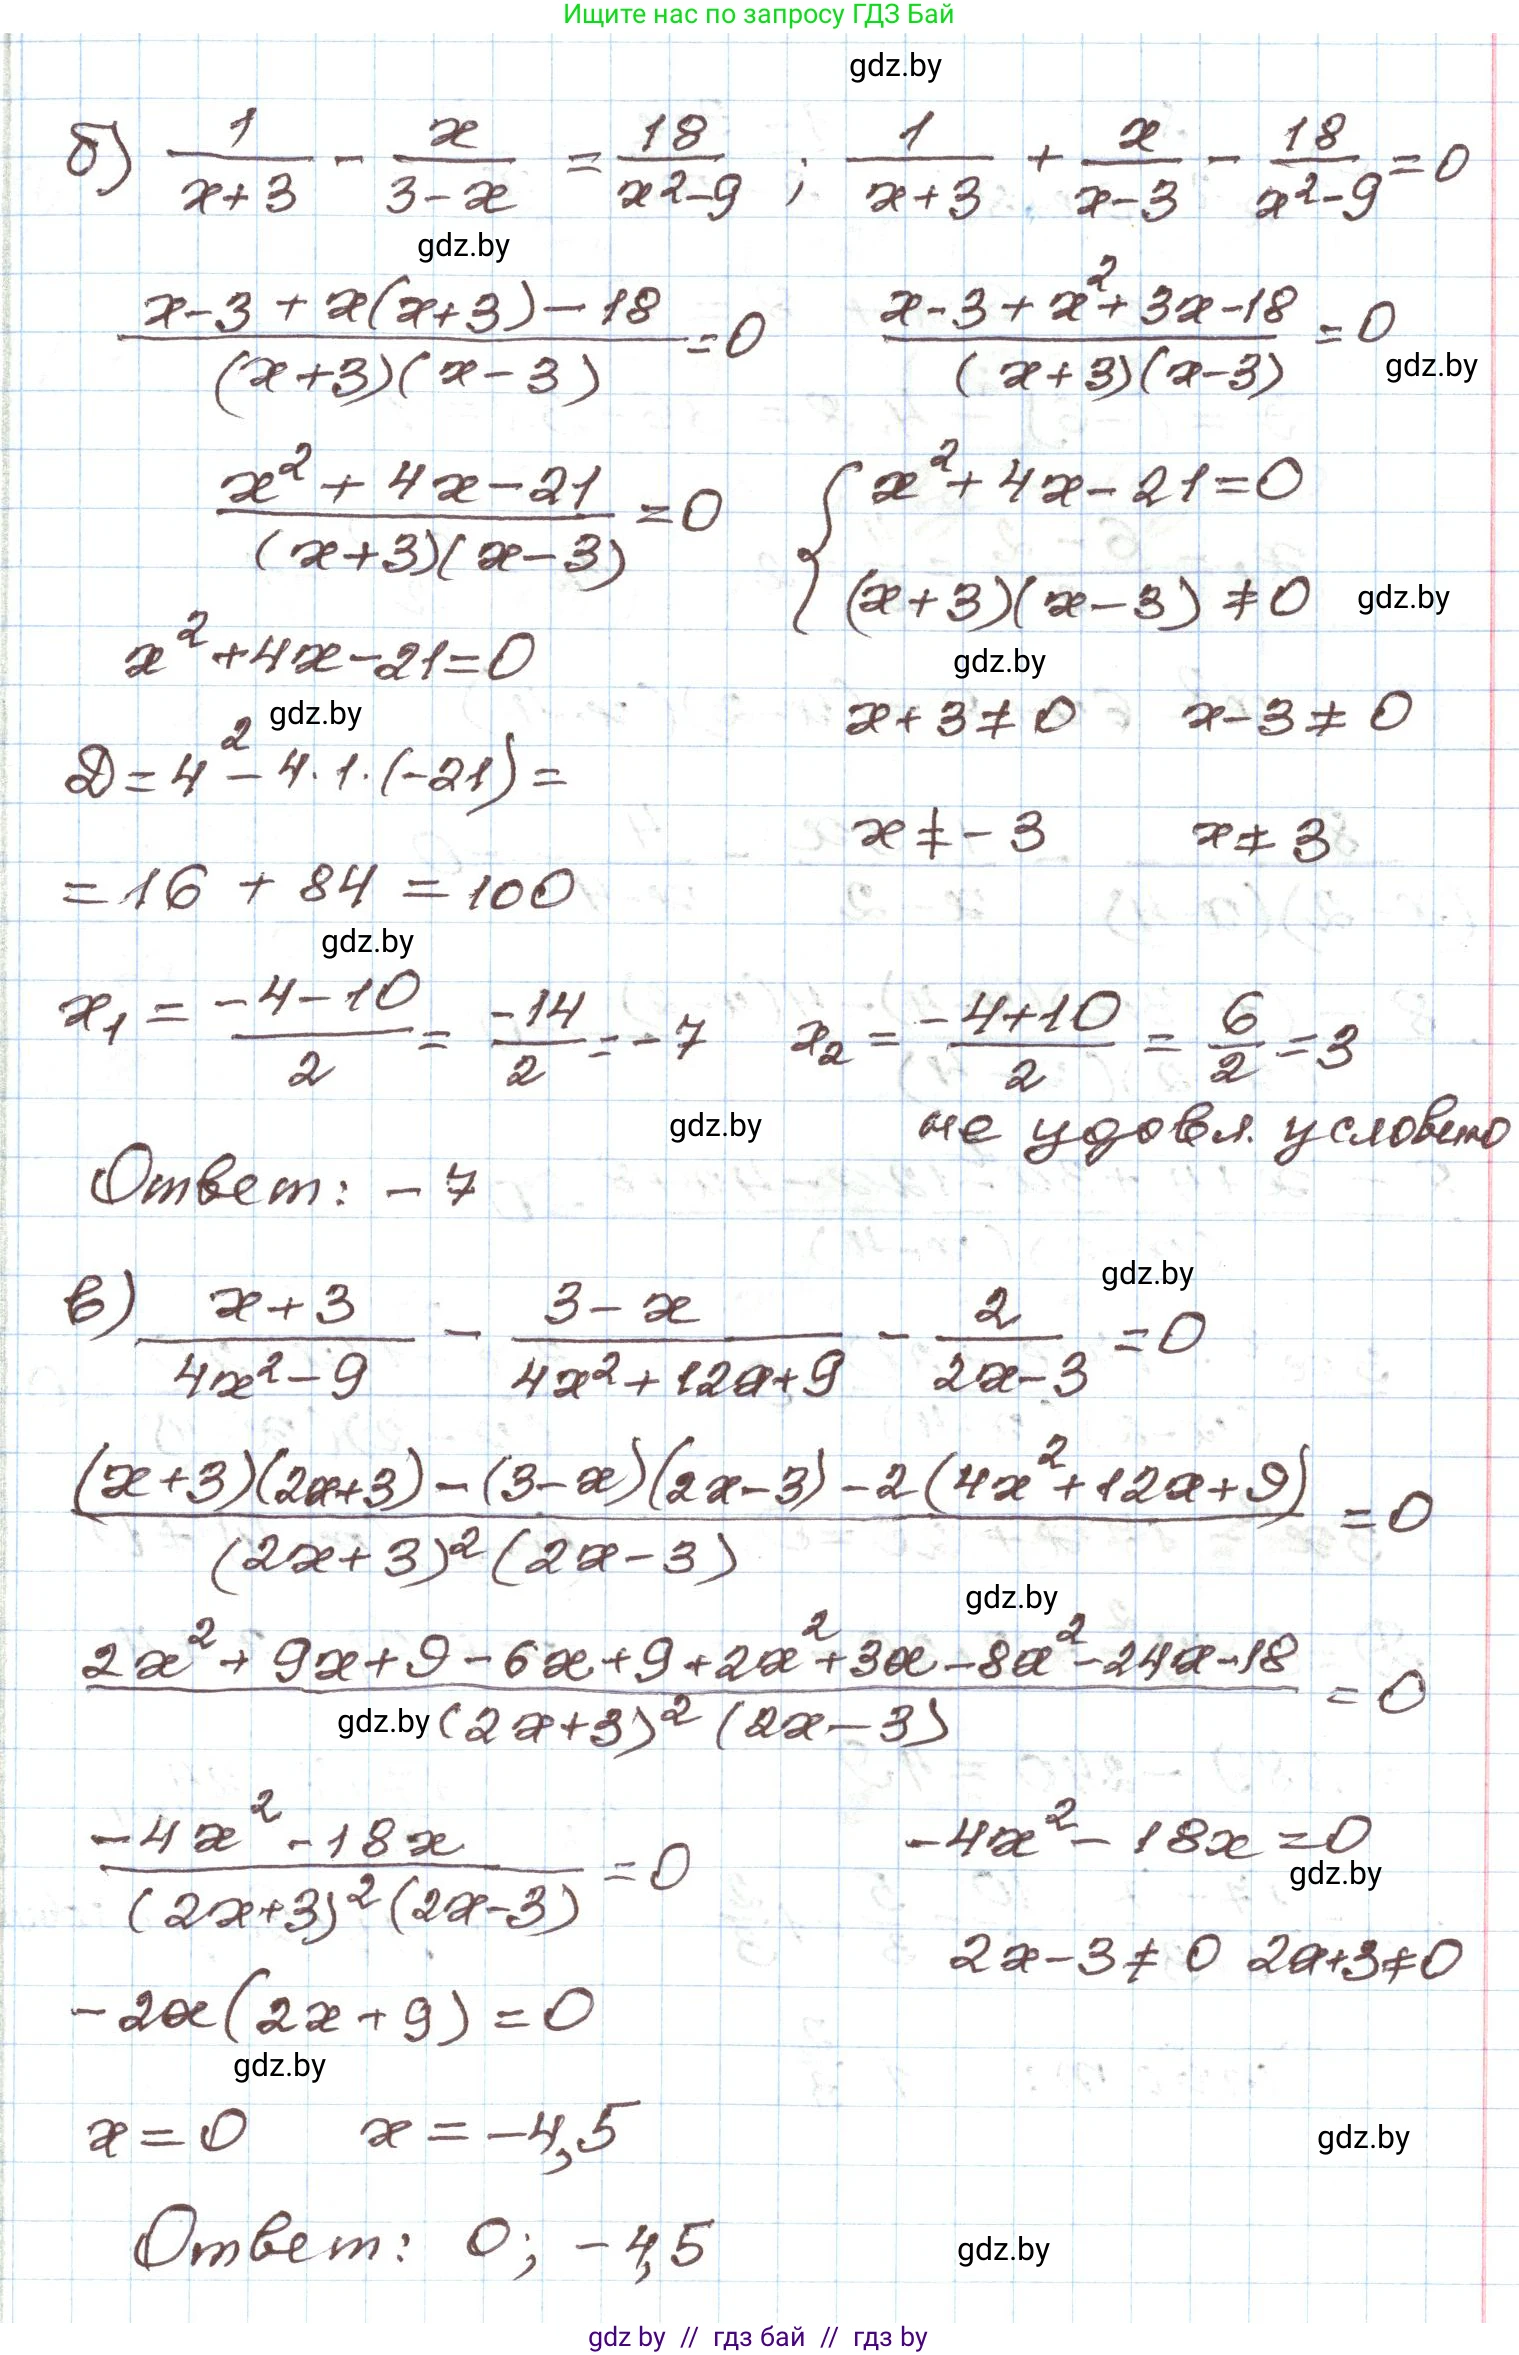 Ищите нас по запросу ГДЗ Бай
gdz.by
б) 1/(x+3) - x/(3-x) = 18/(x²-9) ; 1/(x+3) + x/(x-3) - 18/(x²-9) = 0
gdz.by
(x-3+x(x+3)-18)/((x+3)(x-3)) = 0 (x-3+x²+3x-18)/((x+3)(x-3)) = 0
gdz.by
(x²+4x-21)/((x+3)(x-3)) = 0 { x²+4x-21=0
(x+3)(x-3) ≠ 0 gdz.by
x²+4x-21=0
gdz.by
gdz.by
x+3≠0 x-3≠0
Д=4²-4·1·(-21)=
x≠-3 x≠3
=16+84=100
gdz.by
x₁ = (-4-10)/2 = -14/2 = -7 x₂ = (-4+10)/2 = 6/2 = 3
gdz.by не удовл. условию
Ответ: -7
gdz.by
в) (x+3)/(4x²-9) - (3-x)/(4x²+12x+9) - 2/(2x-3) = 0
((x+3)(2x+3)-(3-x)(2x-3)-2(4x²+12x+9))/((2x+3)²(2x-3)) = 0
gdz.by
(2x²+9x+9-6x+9+2x²+3x-8x²-24x-18)/((2x+3)²(2x-3)) = 0
gdz.by
(-4x²-18x)/((2x+3)²(2x-3)) = 0 -4x²-18x=0
gdz.by
2x-3≠0 2x+3≠0
-2x(2x+9)=0
gdz.by
x=0 x=-4,5
gdz.by
Ответ: 0; -4,5
gdz.by
gdz by // гдз бай // гдз by